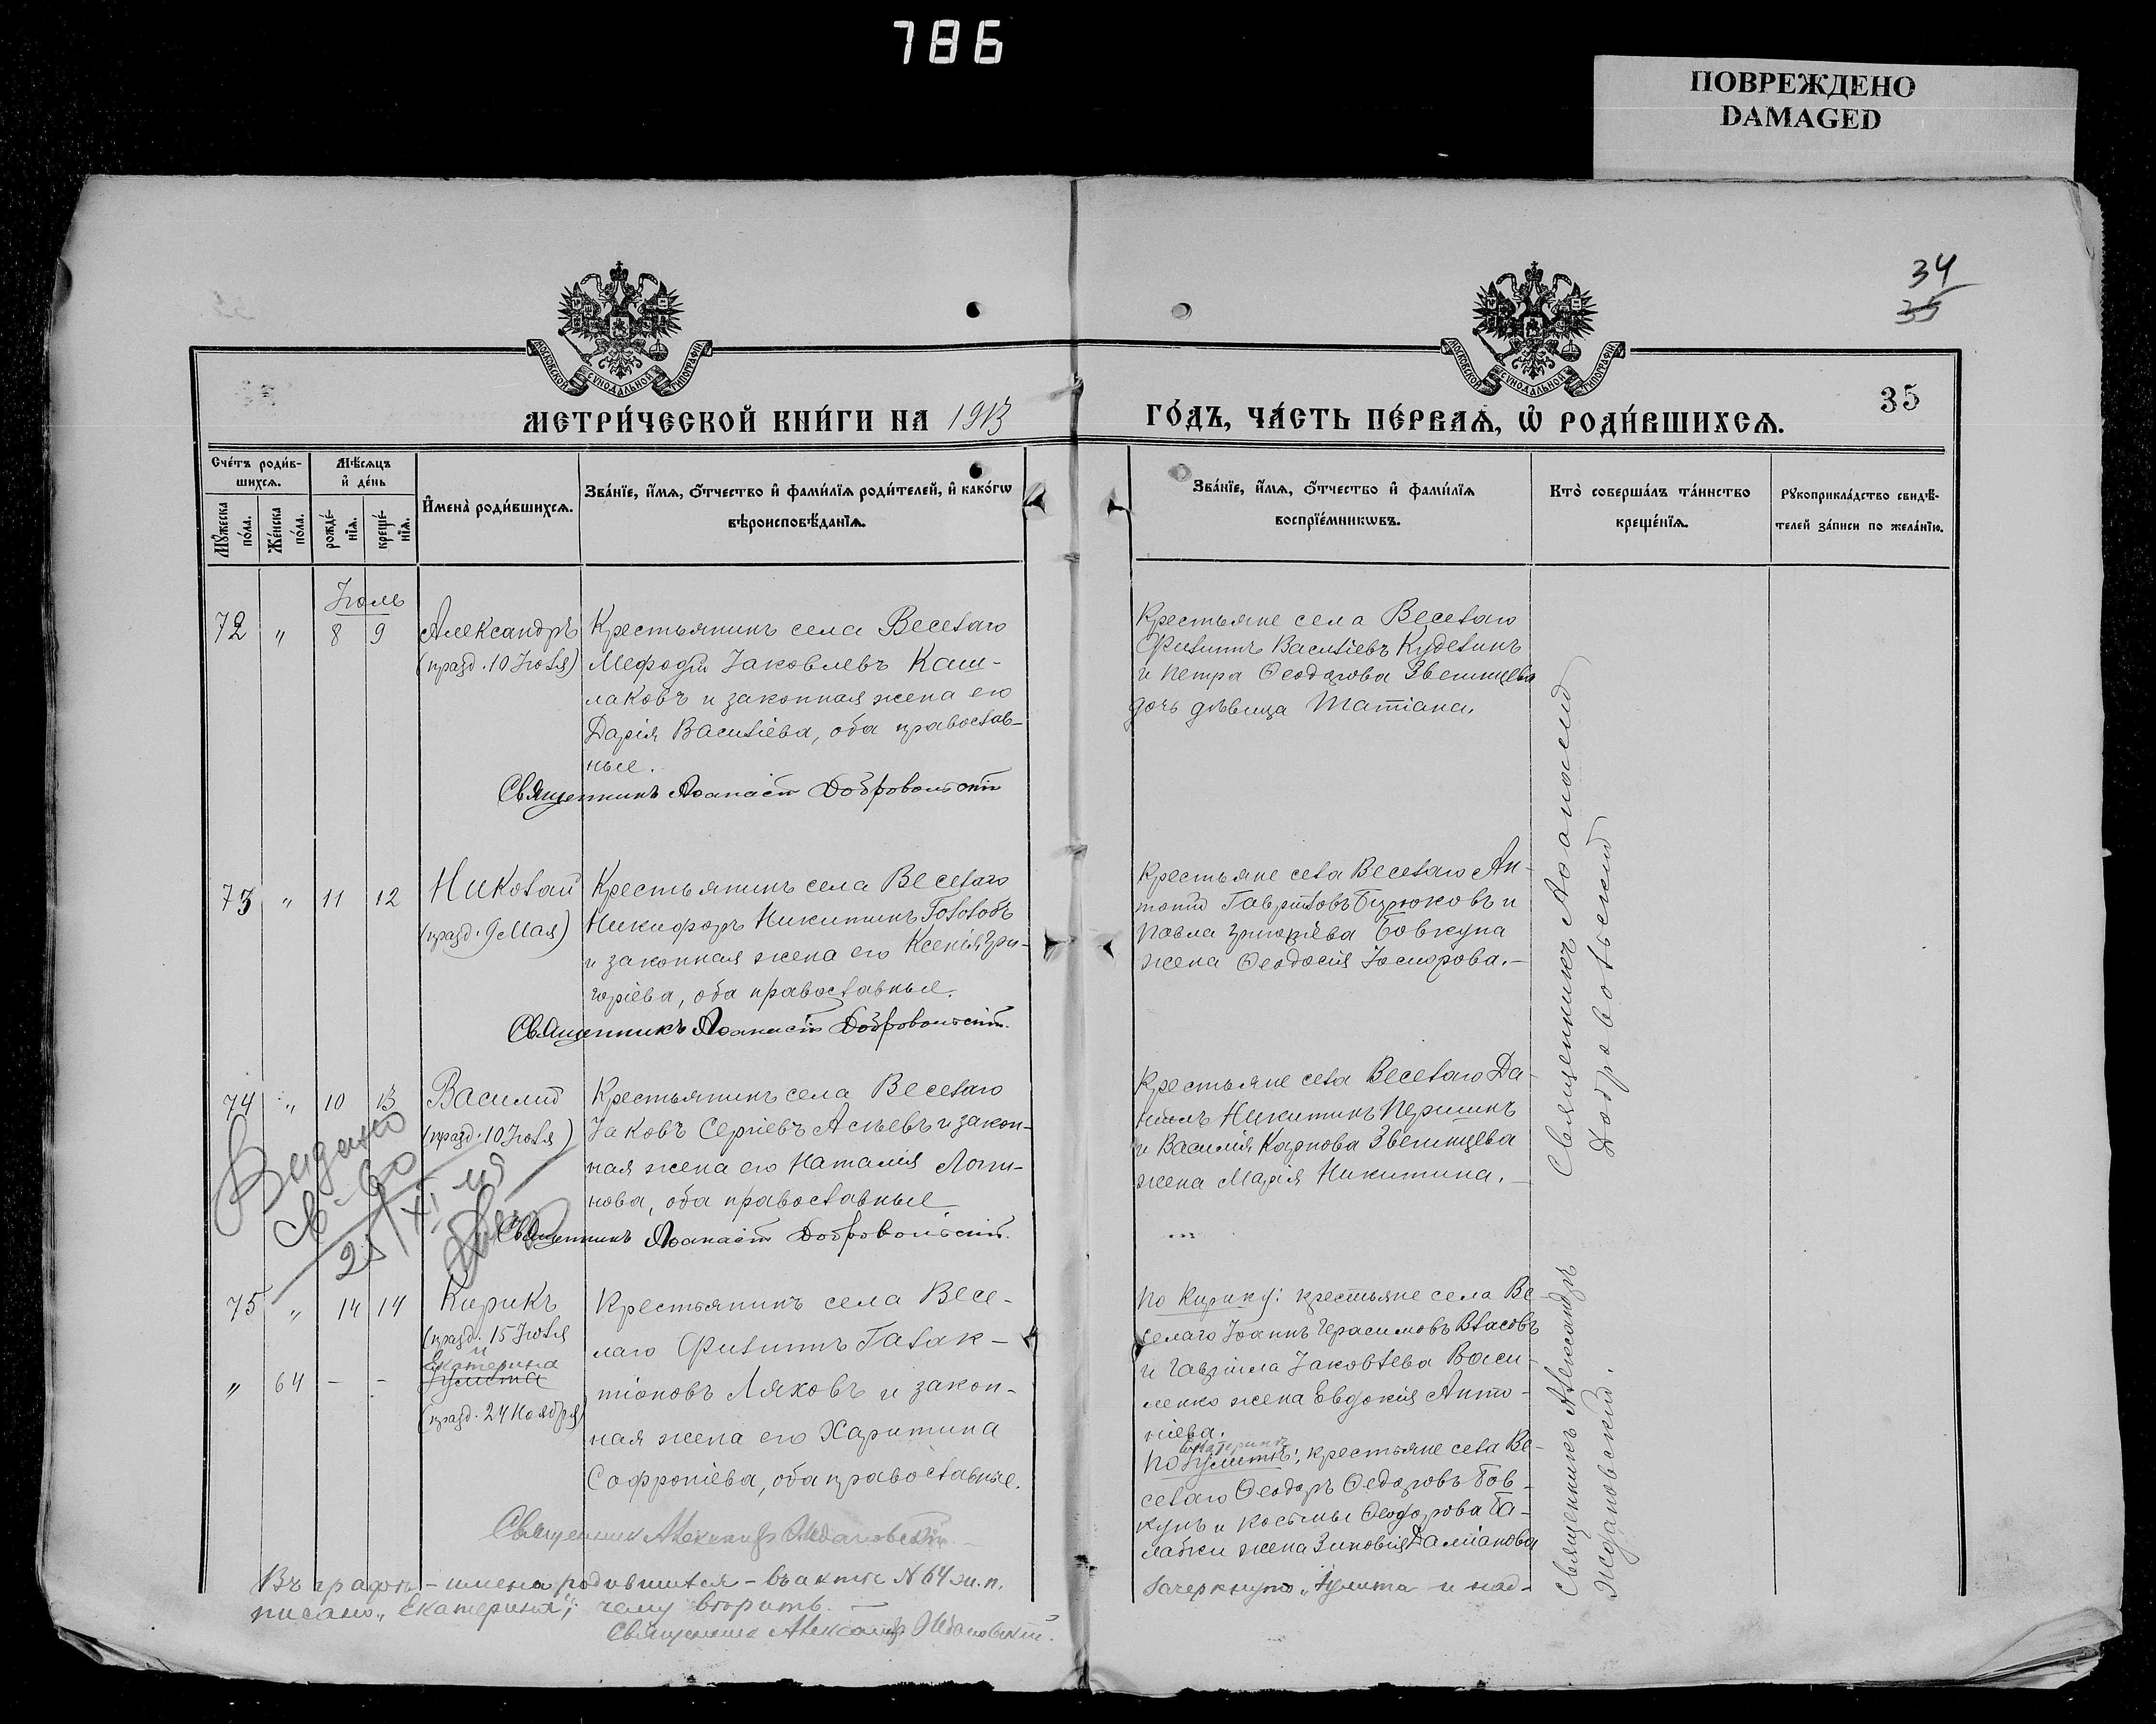 786
ПОВРЕЖДЕНО
DAMAGED
34
35
35
МОСКОВСКОЙ СѴНОДАЛЬНОЙ ТИПОГРАФІИ
МОСКОВСКОЙ СѴНОДАЛЬНОЙ ТИПОГРАФІИ
МЕТРИ́ЧЕСКОЙ КНИ́ГИ НА 1913
ГО́ДЪ, ЧА́СТЬ ПЕ́РВАѦ, Ѡ҆ РОДИ́ВШИХСѦ.
Сче́тъ роди́в-
шихсѧ.
Мꙋ́жеска по́ла.
Же́нска по́ла.
Мѣ́сѧцъ
и҆ де́нь
рожде́-
нїѧ.
креще́-
нїѧ.
И҆мена̀ роди́вшихсѧ.
Зва́нїе, и҆́мѧ, ѻ҆́тчество и҆ фами́лїѧ роди́телей, и҆ како́гѡ
вѣроисповѣ́данїѧ.
Зва́нїе, и҆́мѧ, ѻ҆́тчество и҆ фами́лїѧ
воспрїе́мникѡвъ.
Кто̀ соверша́лъ та́инство
креще́нїѧ.
Рꙋкоприкла́дство свидѣ́-
телей за́писи по жела́нїю.
Іюль
72 " 8 9
Александръ
(празд. 10 Іюля)
Крестьянинъ села Веселаго
Мефодій Іаковлевъ Каш-
лаковъ и законная жена его
Дарія Василіева, оба православ-
ные.
Священникъ Аѳанасій Добровольскій
Крестьяне села Веселаго
Филиппъ Василіевъ Куделинъ
и Петра Ѳеодорова Звегинцева
дочь дѣвица Татіана.
73 " 11 12
Николай
(празд. 9 Мая)
Крестьянинъ села Веселаго
Никифоръ Никитинъ Голобобъ
и законная жена его Ксенія Гри-
горіева, оба православные.
Священникъ Аѳанасій Добровольскій.
Крестьяне села Веселаго Ан-
тоній Гавріиловъ Бирюковъ и
Павла Григоріева Бовкуна
жена Ѳеодосія Іосифова.-
74 " 10 13
Василій
(празд. 10 Іюля)
Крестьянинъ села Веселаго
Іаковъ Сергіевъ Асѣевъ и закон-
ная жена его Наталія Логи-
нова, оба православные
Священникъ Аѳанасій Добровольскій.
Выдано
св-во
25/XI
Крестьяне села Веселаго Да-
ніилъ Никитинъ Першинъ
и Василія Карпова Звегинцева
жена Марія Никитина.-
Священникъ Аѳанасій
Добровольскій
75 " 14 14
Кирикъ
(празд. 15 Іюля
и
Екатерина
Іулитта
" 64 - -
(празд. 24 Ноября)
Крестьянинъ села Весе-
лаго Филиппъ Галак-
тіоновъ Ляховъ и закон-
ная жена его Харитина
Софроніева, оба православные.
Священник Александр Ждановскій
По Кирику: крестьяне села Ве-
селаго Іоаннъ Герасимовъ Власовъ
и Гавріила Іаковлева Васи-
ленко жена Евдокія Анто-
ніева.
Екатеринѣ
По Іулиттѣ: крестьяне села Ве-
селаго Ѳеодоръ Ѳедоровъ Бов-
кунъ и Косьмы Ѳеодорова Ба-
лабки жена Зиновія Даміанова
Священникъ Александръ
Ждановскій.
Въ графѣ - имена родившихся - въ актѣ N 64 ж. п.
зачеркнуто "Іулитта и над-
писано "Екатерина", чему вѣрить.-
Священник Александр Ждановскій.